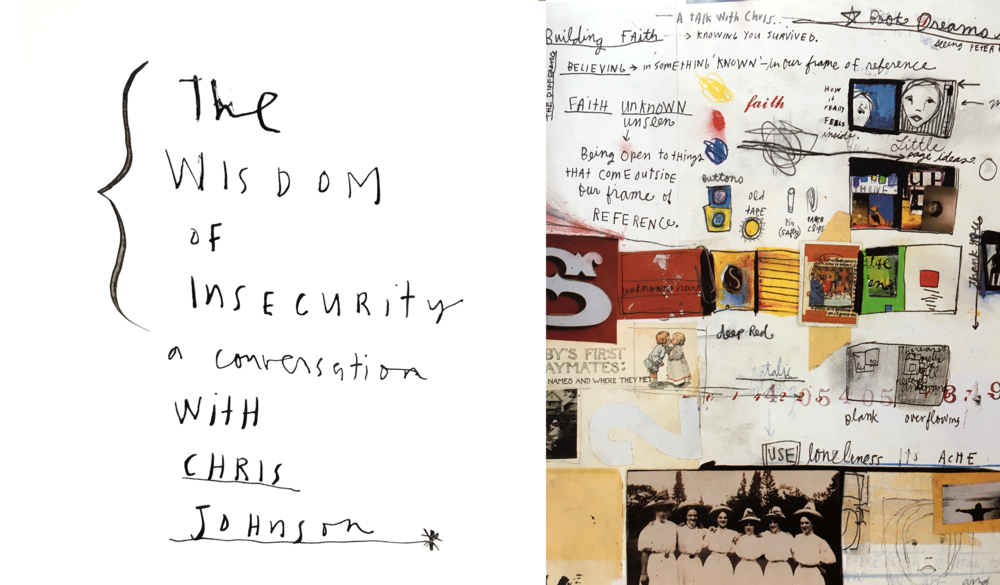 The
WISDOM
OF
INSECURITY
a conversation
WITH
CHRIS
JOHNSON
A talk with Chris..
→ KNOWING YOU SURVIVED.
Book Dreams
Building FAITH
BELIEVING → in SOMETHING 'KNOWN' - in our frame of reference
THE DIFFERENCE
FAITH UNKNOWN
unseen
Being OPEN to things
THAT COME OUTSIDE
Our frame of
REFERENCE.
faith
HOW
IT REALLY
FEELS
inside.
Little
page ideas.
Buttons
OLD
TAPE
Pin
(SAFTY)
PAPER
CLIPS
THRIVE
S
Thank you
deep Red
BY'S FIRST
AYMATES:
NAMES AND WHERE THEY MET
2
blank
overflowing
USE loneliness ITS ACHE